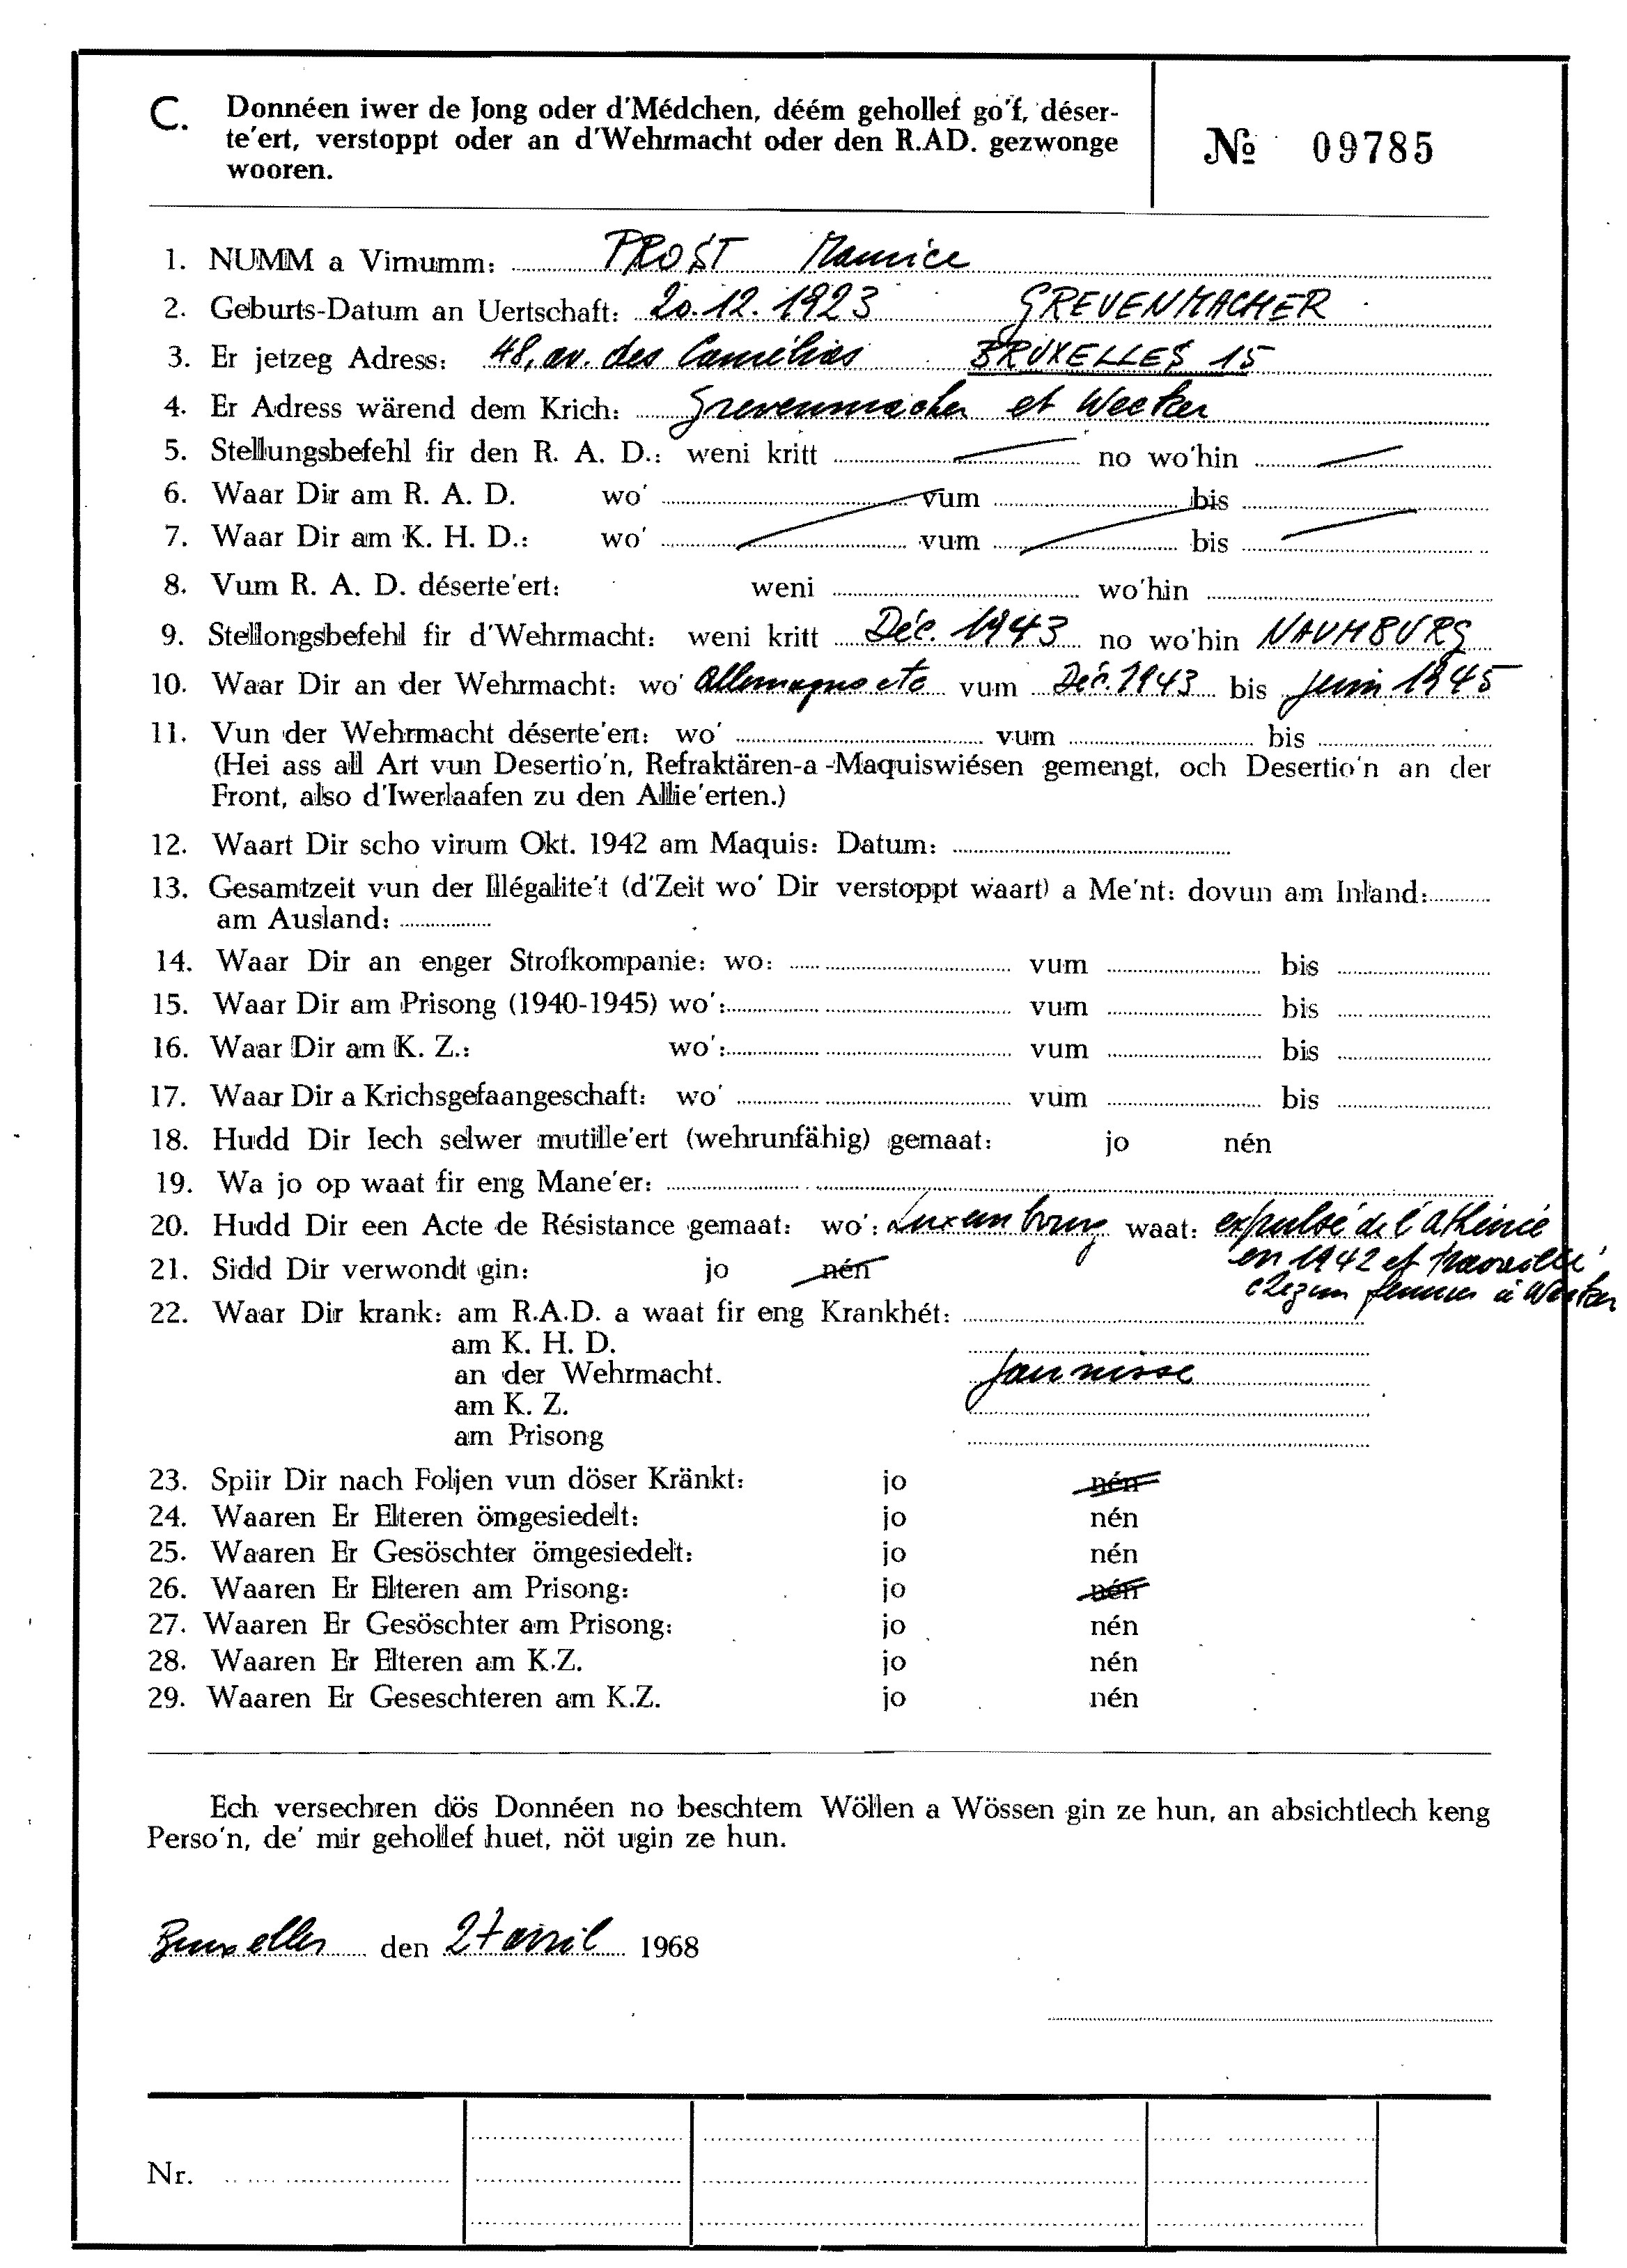 C. Donnéen iwer de Jong oder d'Médchen, déém gehollef go'f, déser-
te'ert, verstoppt oder an d'Wehrmacht oder den R.AD. gezwonge
wooren.
№ 09785
1. NUMM a Virnumm: PROST Maurice
2. Geburts-Datum an Uertschaft: 20.12.1923 GREVENMACHER
3. Er jetzeg Adress: 48, av. des Camélias BRUXELLES 15
4. Er Adress wärend dem Krich: Grevenmacher et Wecker
5. Stellungsbefehl fir den R. A. D.: weni kritt — no wo'hin —
6. Waar Dir am R. A. D. wo' vum bis
7. Waar Dir am K. H. D.: wo' vum bis
8. Vum R. A. D. déserte'ert: weni wo'hin
9. Stellongsbefehl fir d'Wehrmacht: weni kritt Déc. 1943 no wo'hin NAUMBURG
10. Waar Dir an der Wehrmacht: wo' Allemagne etc vum Déc. 1943 bis juin 1945
11. Vun der Wehrmacht déserte'ert: wo' vum bis
(Hei ass all Art vun Desertio'n, Refraktären-a -Maquiswiésen gemengt, och Desertio'n an der
Front, also d'Iwerlaafen zu den Allie'erten.)
12. Waart Dir scho virum Okt. 1942 am Maquis: Datum:
13. Gesamtzeit vun der Illégalite't (d'Zeit wo' Dir verstoppt waart) a Me'nt: dovun am Inland:
am Ausland:
14. Waar Dir an enger Strofkompanie: wo: vum bis
15. Waar Dir am Prisong (1940-1945) wo': vum bis
16. Waar Dir am K. Z.: wo': vum bis
17. Waar Dir a Krichsgefaangeschaft: wo' vum bis
18. Hudd Dir Iech selwer mutille'ert (wehrunfähig) gemaat: jo nén
19. Wa jo op waat fir eng Mane'er:
20. Hudd Dir een Acte de Résistance gemaat: wo': Luxembourg waat: expulsé de l'athénée
en 1942 et travaillé
21. Sidd Dir verwondt gin: jo nén
chez un fermier à Wecker
22. Waar Dir krank: am R.A.D. a waat fir eng Krankhét:
am K. H. D.
an der Wehrmacht. jaunisse
am K. Z.
am Prisong
23. Spiir Dir nach Foljen vun döser Kränkt: jo nén
24. Waaren Er Elteren ömgesiedelt: jo nén
25. Waaren Er Gesöschter ömgesiedelt: jo nén
26. Waaren Er Elteren am Prisong: jo nén
27. Waaren Er Gesöschter am Prisong: jo nén
28. Waaren Er Elteren am K.Z. jo nén
29. Waaren Er Geseschteren am K.Z. jo nén
Ech versechren dös Donnéen no beschtem Wöllen a Wössen gin ze hun, an absichtlech keng
Perso'n, de' mir gehollef huet, nöt ugin ze hun.
Bruxelles den 27 avril 1968
Nr.